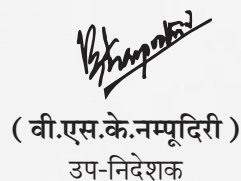 ( वी.एस.के.नम्पूदिरी )
उप-निदेशक